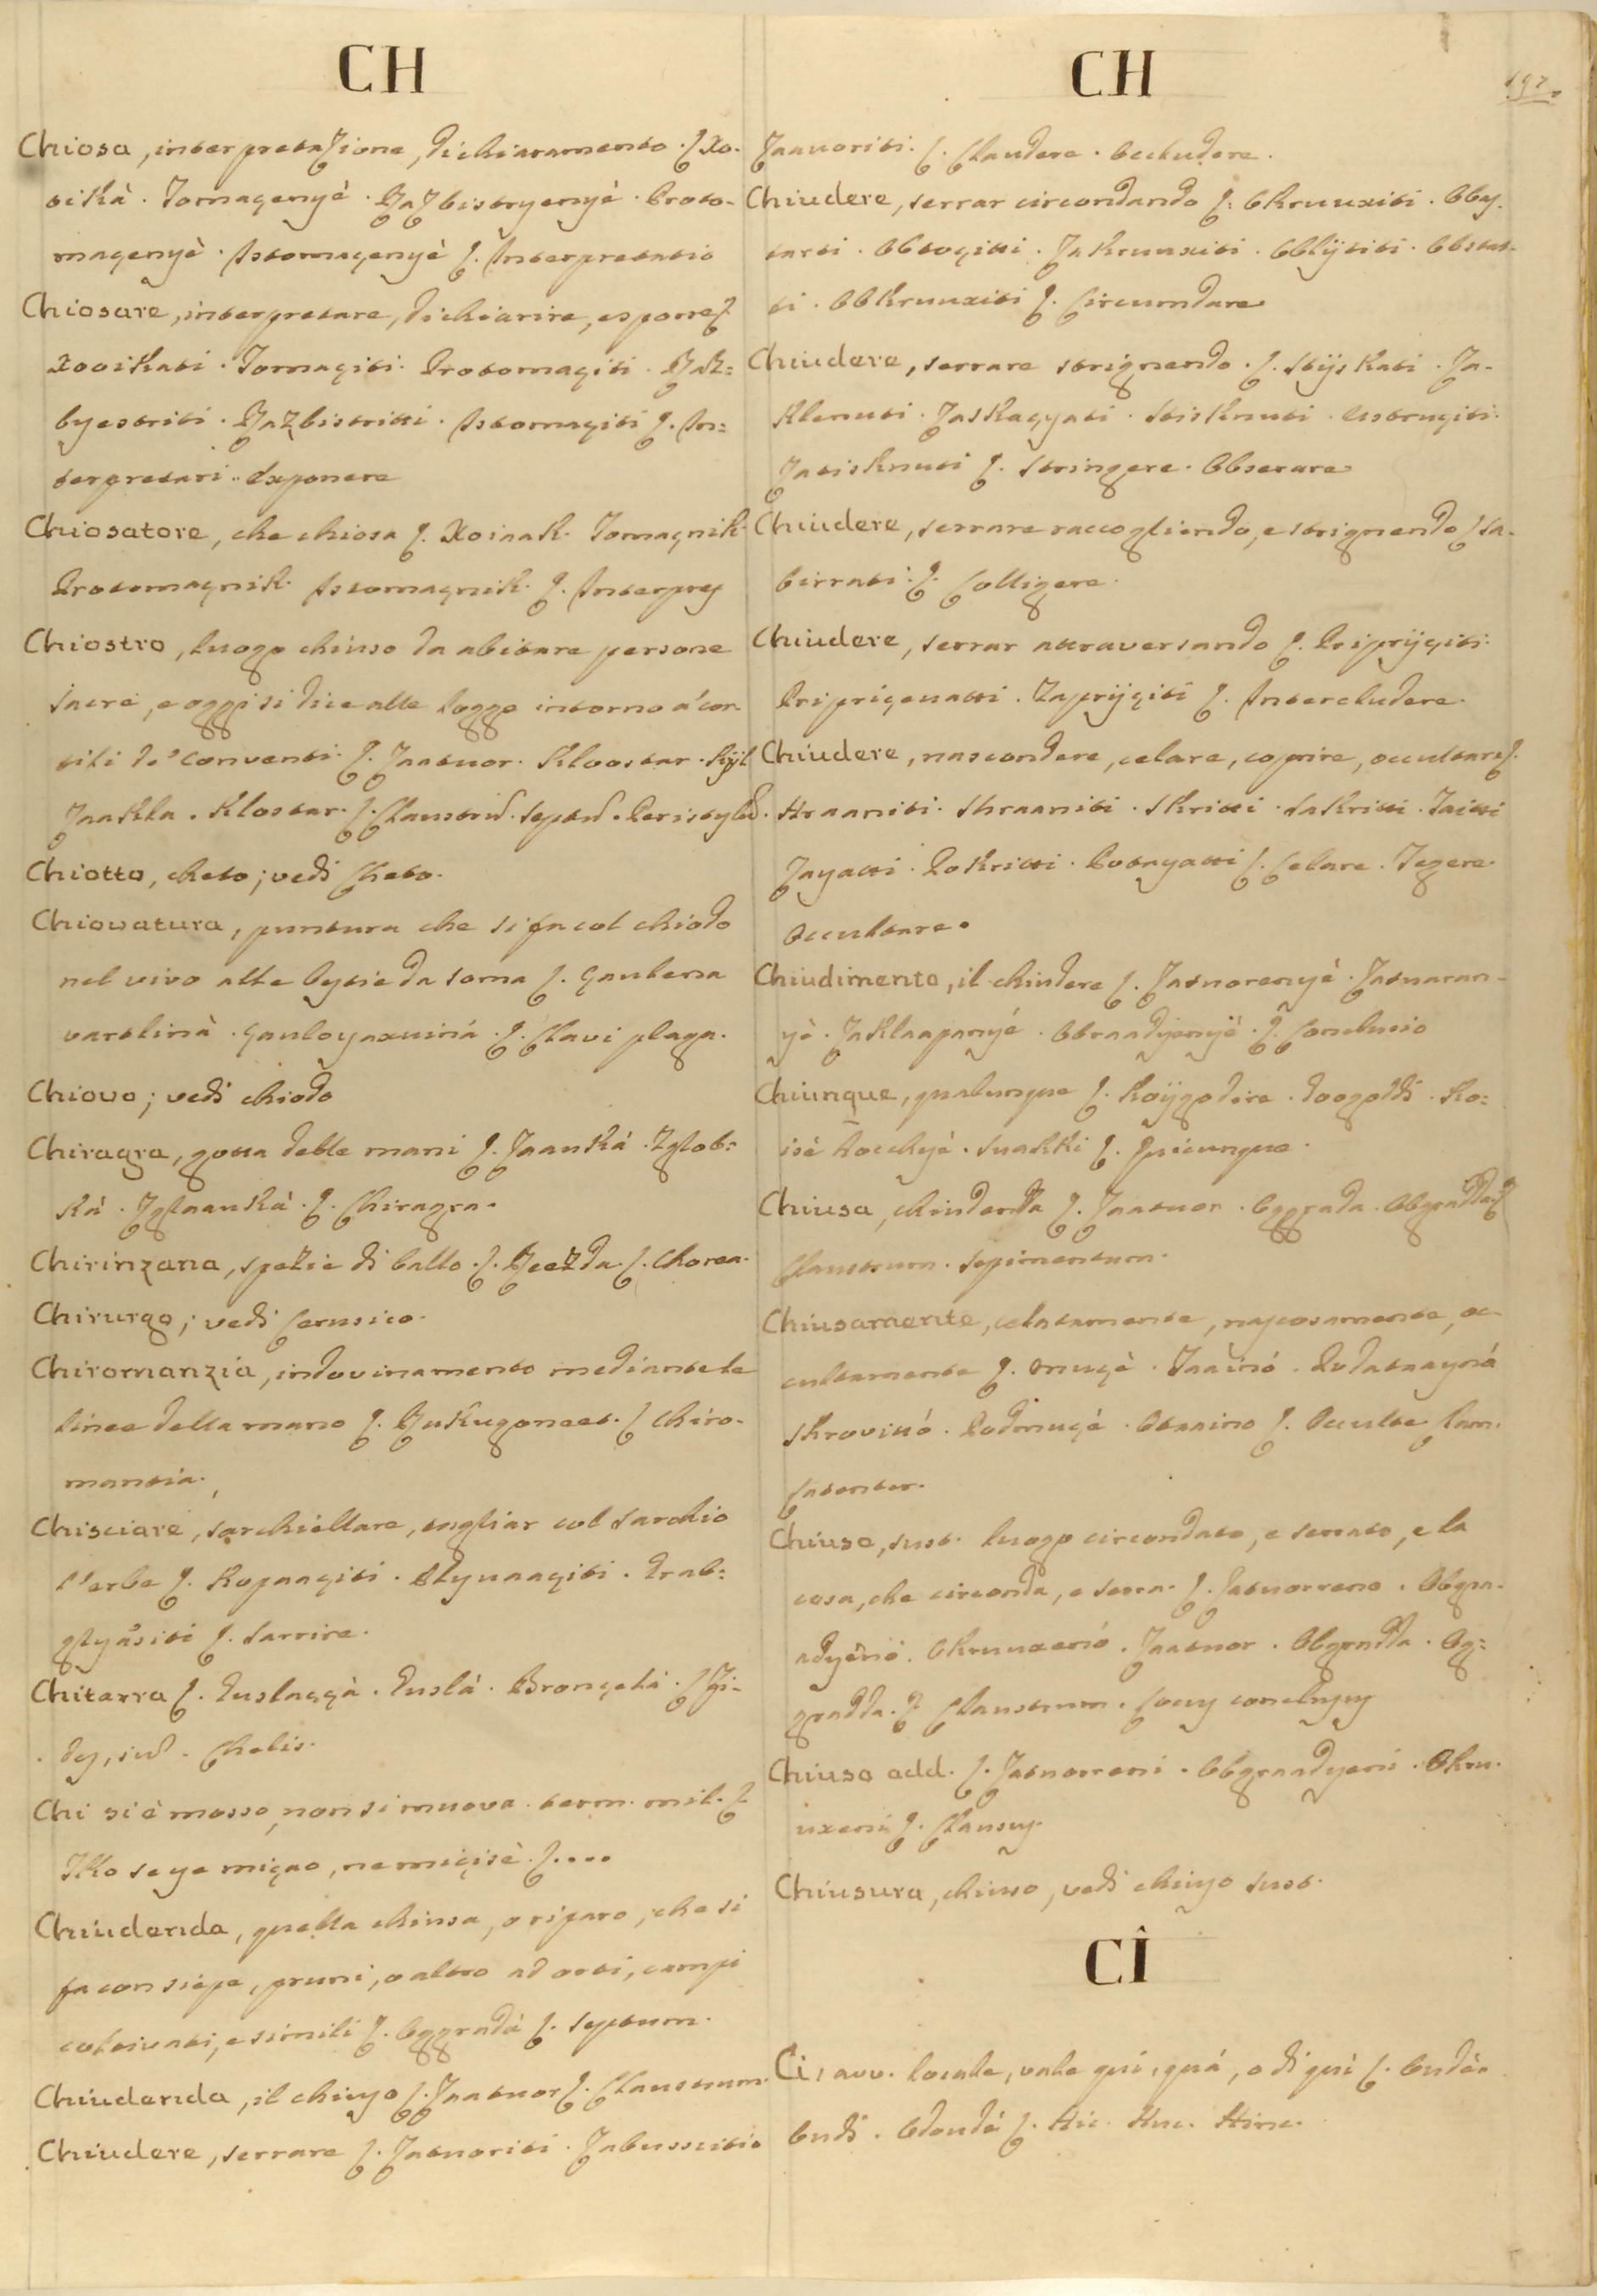 CH
Chiosa, interpretazione, dichiaramento. ſ. Xo-
cikà. Tomaçenyè. Razbistryenyè. Proto-
maçenyè. Istomaçenyè ſ. Interpretatio
Chiosare, interpretare, dichiarire, esporre ſ.
Xocikati. Tomaçiti. Protomaçiti. Raz=
byestriti. Razbistritti. Istomaçiti ſ. In=
terpretari. Exponere
Chiosatore, che chiosa ſ. Tomaçnik.
Protomaçnik. Istomaçnik. ſ. Interpres
Chiostro, luogo chiuso da abitare persone
sacre, e oggi si dice alle logge intorno a' cor-
tili de' conventi. ſ. Zaatuor. Kloostar.
Klostar. ſ. Claustrū. Septū. Peristylū.
Chiotto, cheto; vedi Cheto.
Chiovatura, puntura che si fa col chiodo
nel vivo alle bestie da soma ſ.
ſ. Clavi plaga.
Chiovo; vedi chiodo
Chiragra, gotta delle mani ſ. Zglob=
kà. ſ. Chiragra.
Chirinzana, spezie di ballo. ſ. ſ. Chorea.
Chirurgo; vedi Cerusico.
Chiromanzia, indovinamento mediante le
linee della mano ſ. ſ. Chiro-
mantia.
Chisciare, sarchiellare, tagliar col sarchio
l'erbe ſ. Kopaaçiti. Plyuaaçiti. Grab=
glyásiti ſ. Sarrire.
Chitarra ſ. Guslaççà. Guslà. Bronçelà. ſ. Fi-
des, ium. Chelis.
Chi si è mosso, non si muova. term. mil. ſ.
Tko se ye miçao, ne miçisè. ſ. ....
Chiudenda, quella chiusa, o riparo, che si
fa con siepe, pruni, o altro ad orti, campi
coltivati, e simili ſ. Oggradà ſ. Septum.
Chiudenda, il chiuso ſ. Zaatuor ſ. Claustrum.
Chiudere, serrare ſ. Zatuoriti. Zabusciti
CH
197.
Zaauoriti. ſ. Claudere. Occludere.
Chiudere, serrar circondando ſ. Okruuxiti. Obas-
tarti. Obtoçitti. Zakruuxiti. Obbyiti. Obstat-
ti. Obkruuxiti ſ. Circumdare
Chiudere, serrare strignendo. ſ. Stijskati. Za-
klenuti. Stisknuti.
Zatisknuti ſ. Stringere. Obserare
Chiudere, serrare raccogliendo, e strignendo ſ. Sa-
birrati. ſ. Colligere.
Chiudere, serrar attraversando ſ. Priprijçiti.
Zaprijçiti ſ. Intercludere.
Chiudere, nascondere, celare, coprire, occultare ſ.
Hraaniti. Shraaniti. Skritti. Sakritti. Taitti
Zayatti. Pokritti. Potayatti ſ. Celare. Tegere.
Occultare.
Chiudimento, il chiudere ſ. Zatuorenyè. Zatuaran-
yè. Zaklaapanyé. Obraadyenyè. ſ. Conclusio
Chiunque, qualunque ſ. Koijgodire. Ko-
ſ. Quicunque.
Chiusa, chiudenda ſ. Zaatuor. Oggrada. Obgradda ſ.
Claustrum. Sepimentum.
Chiusamente, celatamente, nascosamente, oc-
cultamente ſ. Taainó. Podataaynó
Skrovitó. Podmuçè. Otaaino ſ. Occulte. Clam.
Latenter.
Chiuso, sust. luogo circondato, e serrato, e la
cosa, che circonda, e serra. ſ. Zatuorreno. Obgra-
adyenó. Okruuxenó. Zaatuor. Obgradda. Og=
gradda. ſ. Claustrum. Locus conclusus
Chiuso add. ſ. Zatuorreni. Obgraadyeni. Okru-
uxeni ſ. Clausus.
Chiusura, chiuso, vedi chiuso sust.
CI
Ci, avv. locale, vale qui, quá, o di quì ſ. Oudè.
Oudi. Odoudè ſ. Hic. Huc. Hinc.